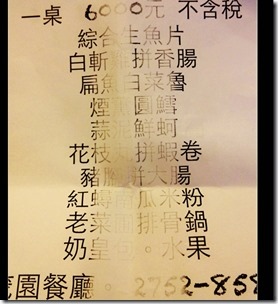 一桌 6000元 不含稅
綜合生魚片
白斬雞拼香腸
扁魚白菜魯
圓鱈
蒜泥鮮蚵
花枝丸拼蝦卷
豬腳拼大腸
紅蟳南瓜米粉
老菜脯排骨鍋
奶皇包。水果
園餐廳。2752-858